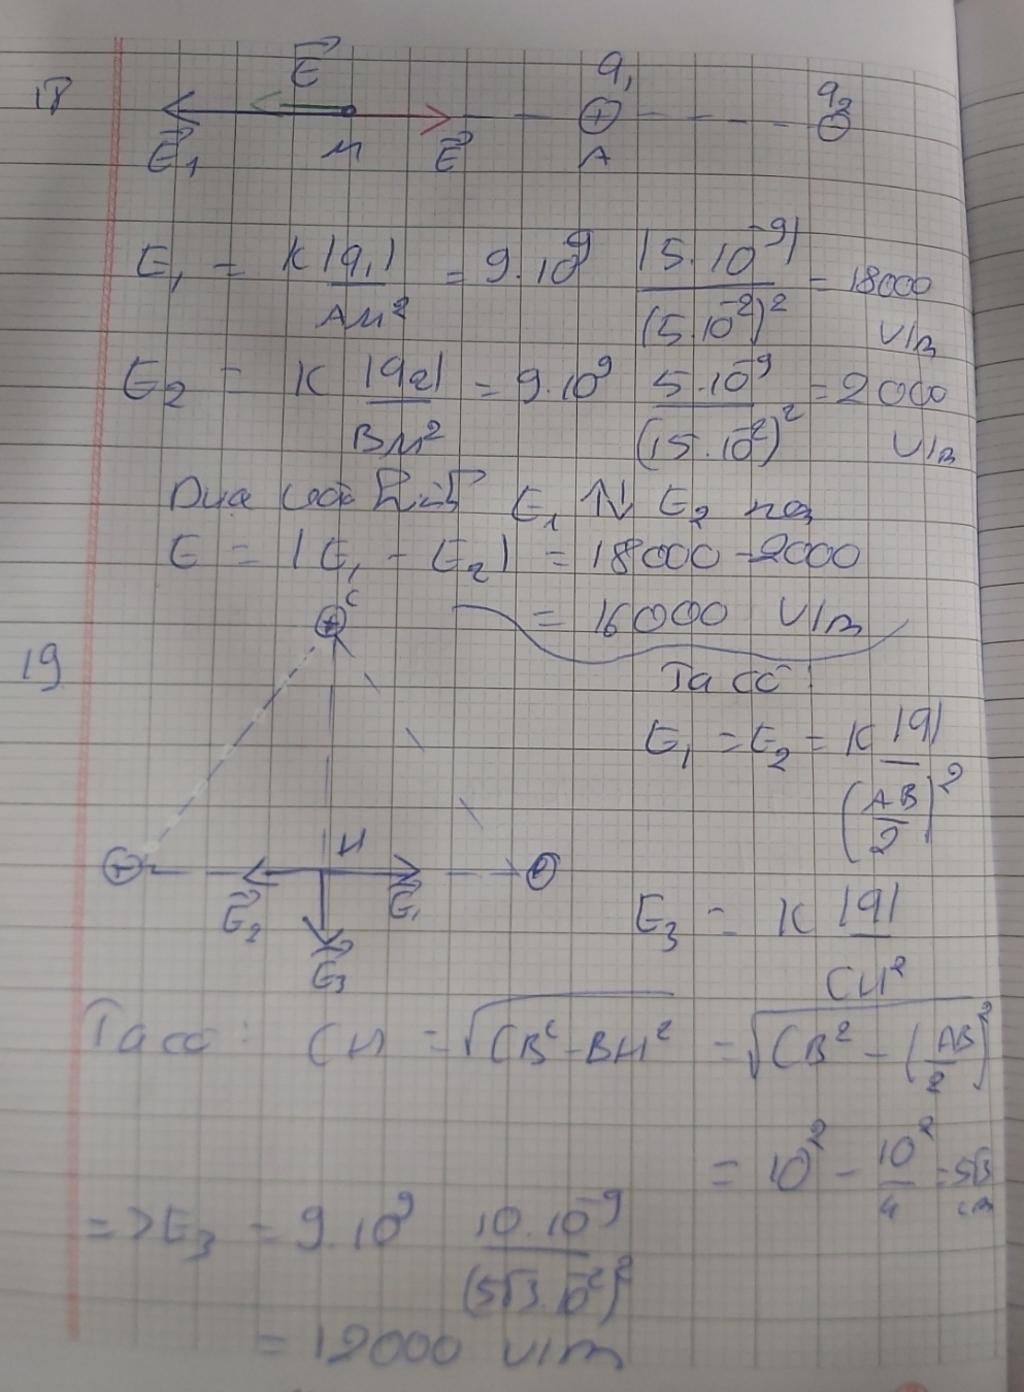 18
E⃗
q₁
q₂
E⃗₁ M E⃗ A
E₁ = K|q₁| / AM² = 9.10⁹ |5.10⁻⁹| / (5.10⁻²)² = 18000 V/m
E₂ = K |q₂| / BM² = 9.10⁹ 5.10⁻⁹ / (15.10⁻²)² = 2000 V/m
Dựa E₁ ↑↓ E₂ nên
E = |E₁ - E₂| = 18000 - 2000
= 16000 V/m
19
C
Ta có:
E₁ = E₂ = K |q| / (AB/2)²
H
E⃗₂ E⃗₁
E⃗₃
E₃ = K |q| / CH²
Ta có: CH = √(CB² - BH²) = √(CB² - (AB/2)²)
= 10² - 10²/4 = 5√3 cm
=> E₃ = 9.10⁹ 10.10⁻⁹ / (5√3.10⁻²)²
= 12000 V/m